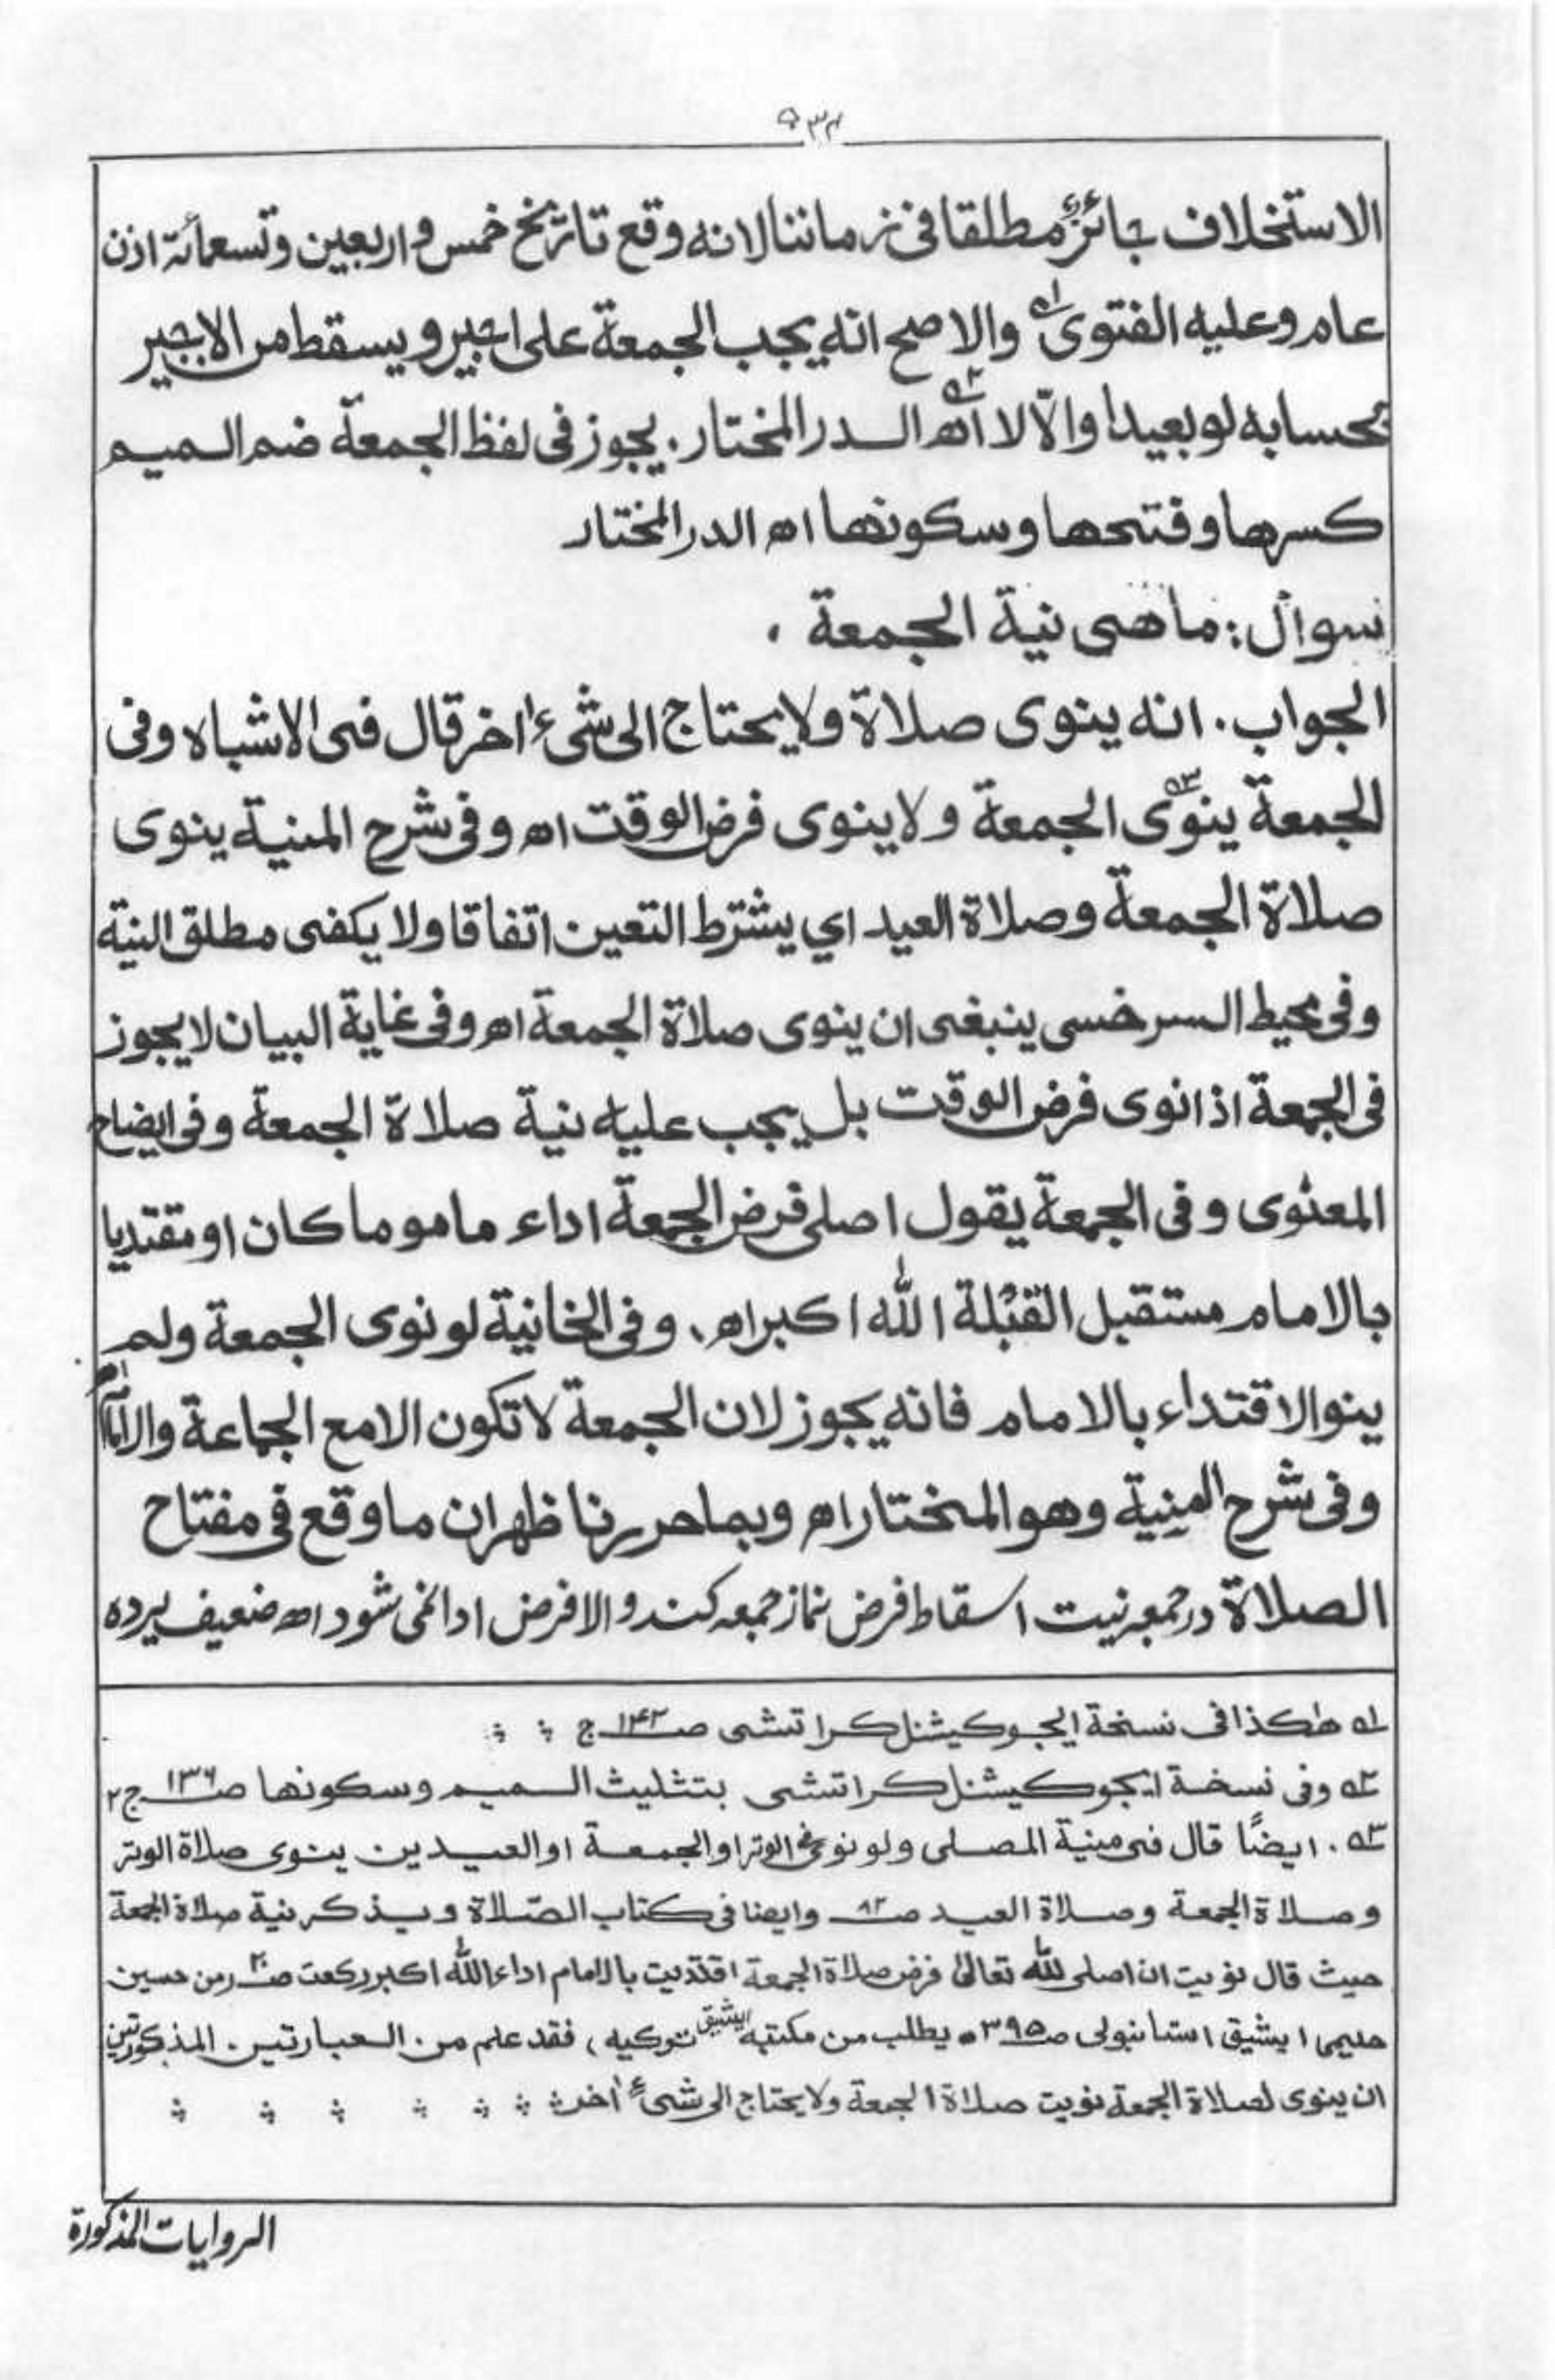 ٥٣٢
الاستخلاف جائزٌ مطلقا فى زماننا لانه وقع تاريخ خمس و اربعين وتسعمائة اذن
عام وعليه الفتوى ١ه والاصح انه يجب الجمعة على اجير و يسقط من الاجير
بحسابه لو بعيدا والّا لا اه ٢ه الدر المختار. يجوز فى لفظ الجمعة ضم الميم
كسرها وفتحها وسكونها اه الدر المختار
سوال: ما هى نية الجمعة .
الجواب. انه ينوى صلاة ولا يحتاج الى شىء اٰخر قال فى الاشباه وفى
الجمعة ينوى ٣ه الجمعة ولا ينوى فرض الوقت اه وفى شرح المنية ينوى
صلاة الجمعة وصلاة العيد اي يشترط التعين اتفاقا ولا يكفى مطلق النية
وفى محيط السرخسى ينبغى ان ينوى صلاة الجمعة اه وفى غاية البيان لا يجوز
فى الجمعة اذا نوى فرض الوقت بل يجب عليه نية صلاة الجمعة وفى ايضاح
المعنوى وفى الجمعة يقول اصلى فرض الجمعة اداء ماموما كان او مقتديا
بالامام مستقبل القبلة الله اكبر اه. وفى الخانية لو نوى الجمعة ولم
ينو الاقتداء بالامام فانه يجوز لان الجمعة لا تكون الا مع الجماعة والامام اه
وفى شرح المنية وهو المختار اه وبما حررنا ظهر ان ما وقع فى مفتاح
الصلاة در جمعه نيت اسقاط فرض نماز جمعه كند و الا فرض ادا نمى شود اه ضعيف يرده
١ه هٰكذا فى نسخة ايجوكيشنل كراتشى صـ١٤٢ ج
٢ه وفى نسخة ايجوكيشنل كراتشى بتثليث الميم وسكونها صـ١٣٦ ج٢
٣ه . ايضًا قال فى منية المصلى ولو نوى فى الوتر او الجمعة او العيدين ينوى صلاة الوتر
وصلاة الجمعة وصلاة العيد صـ٨٢ وايضا فى كتاب الصّلاة ويذكر نية صلاة الجمعة
حيث قال نويت ان اصلى لله تعالىٰ فرض صلاة الجمعة اقتديت بالامام اداء الله اكبر ركعت من حسين
حليمى ايشيق استانبولى صـ٣٩٥ يطلب من مكتبه ايشيق توكيه، فقد علم من العبارتين المذكورتين
ان ينوى لصلاة الجمعة نويت صلاة الجمعة ولا يحتاج الى شىءٍ اٰخر
الروايات المذكورة